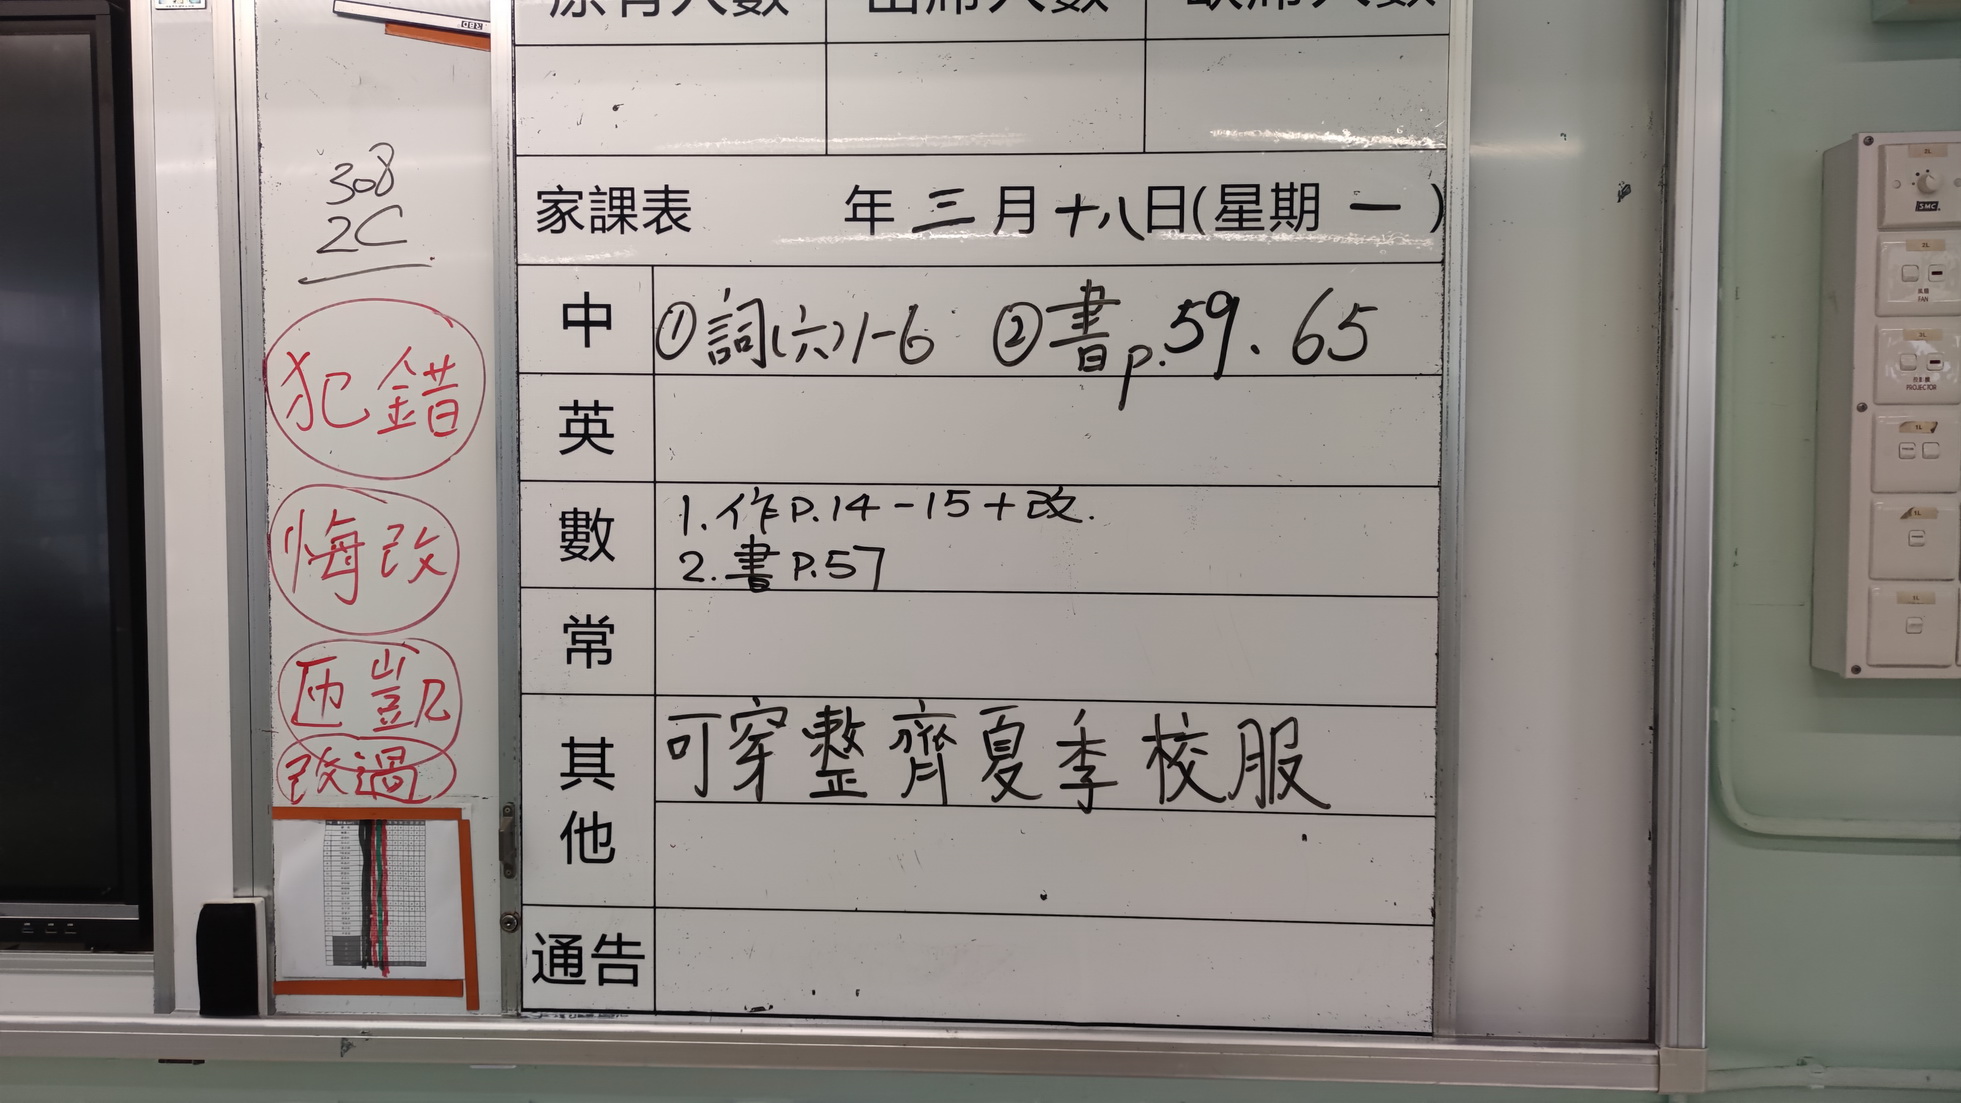 原有人數 出席人數 缺席人數
308
2C
家課表 年 三 月 十八 日(星期 一 )
中 ①詞(六)1-6 ②書p.59、65
犯錯
英
數 1. 作P.14-15+改.
2. 書P.57
悔改
常
匝凱
其他 可穿整齊夏季校服
改過
通告
SMC
FAN
PROJECTOR